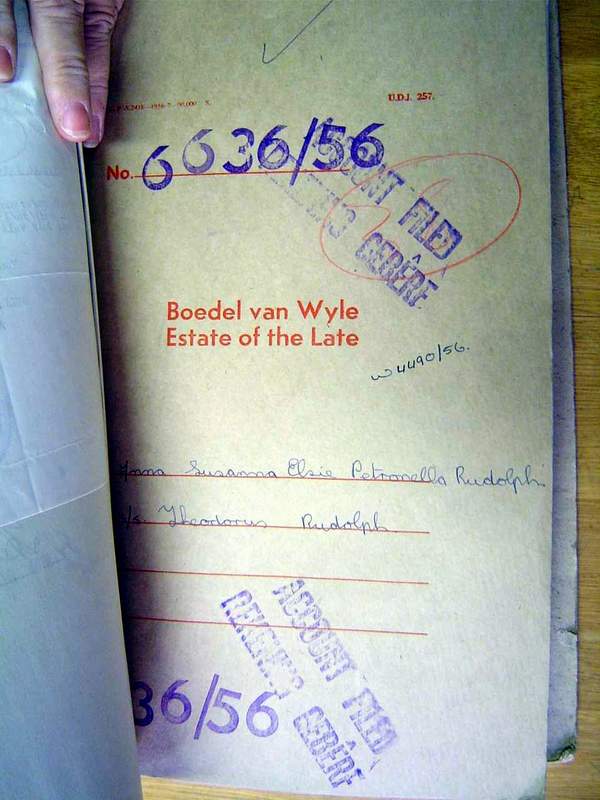 U.D.J. 257.
No. 6636/56
ACCOUNT FILED
GEBÊRE
Boedel van Wyle
Estate of the Late
w 4490/56.
Anna Susanna Elsie Petronella Rudolph
/s. Theodorus Rudolph
ACCOUNT FILED
REKENING GEBÊRE
36/56